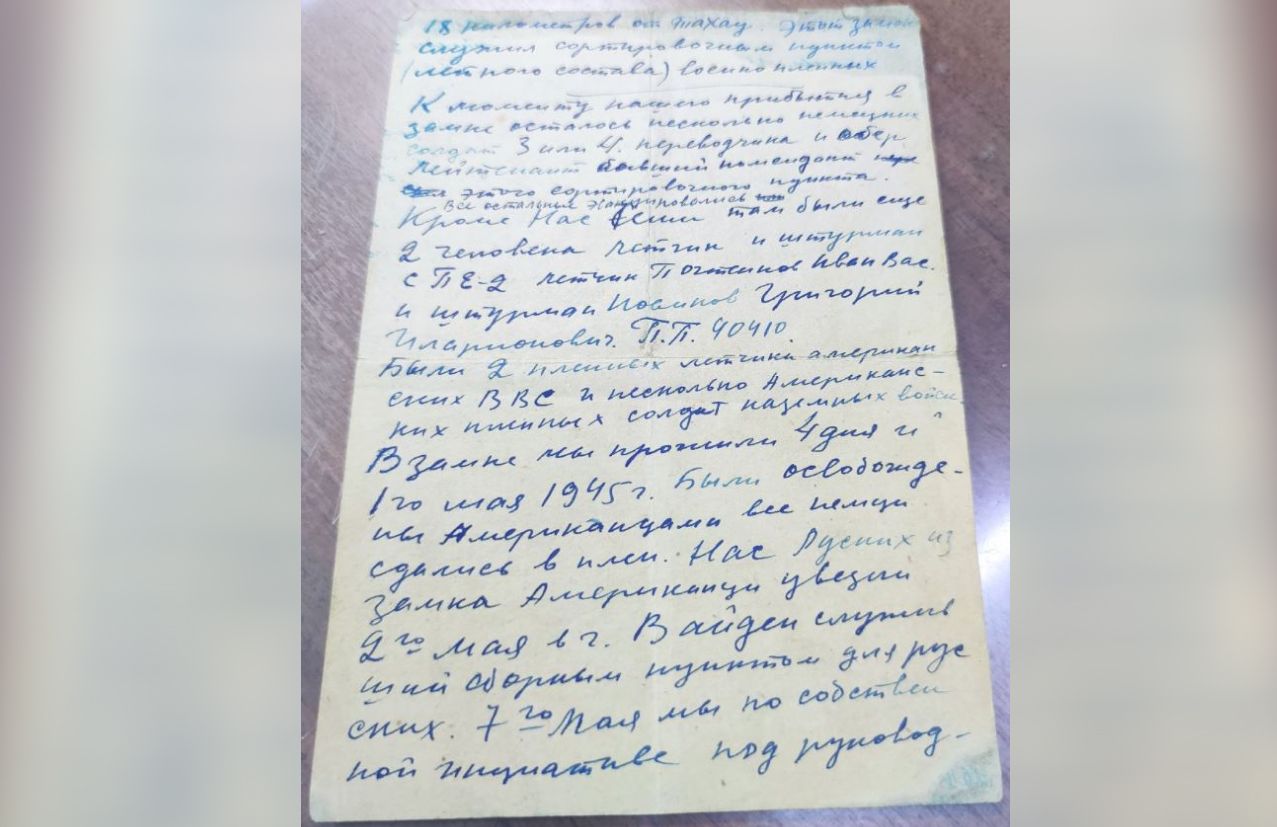 18 километров от Тахау. Этот замок
служил сортировочным пунктом
(летного состава) военнопленных
К моменту нашего прибытия в
замке осталось несколько немецких
солдат 3 или 4. переводчика и обер
лейтенант бывший комендант
этого сортировочного пункта.
Все остальные эвакуировались
Кроме Нас Семи там были еще
2 человека летчик и штурман
с ПЕ-2 летчик Иван Вас.
и штурман Новиков Григорий
Иларионович. П.П. 40410.
Были 2 пленных летчика американ
ских ВВС и несколько Американс-
ких пленых солдат наземных войск.
В замке мы прожили 4 дня и
1го мая 1945 г. Были освобожде-
ны Американцами все немци
сдались в плен. Нас Руских из
замка Американци увезли
2го мая в г. Вайден служив
ший сборным пунктом для рус
ских. 7го Мая мы по собствен
ной инициативе под руковод-